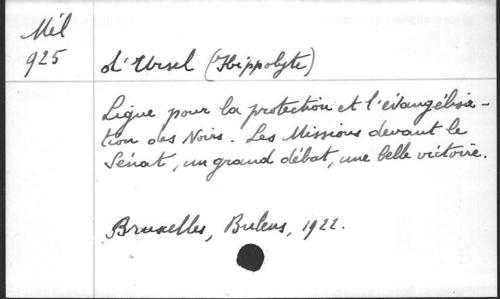 Mél
925
d'Ursel (Hippolyte)
Ligue pour la protection et l'évangélisa-
tion des Noirs. Les Missions devant le
Sénat, un grand débat, une belle victoire.
Bruxelles, Bulens, 1922.